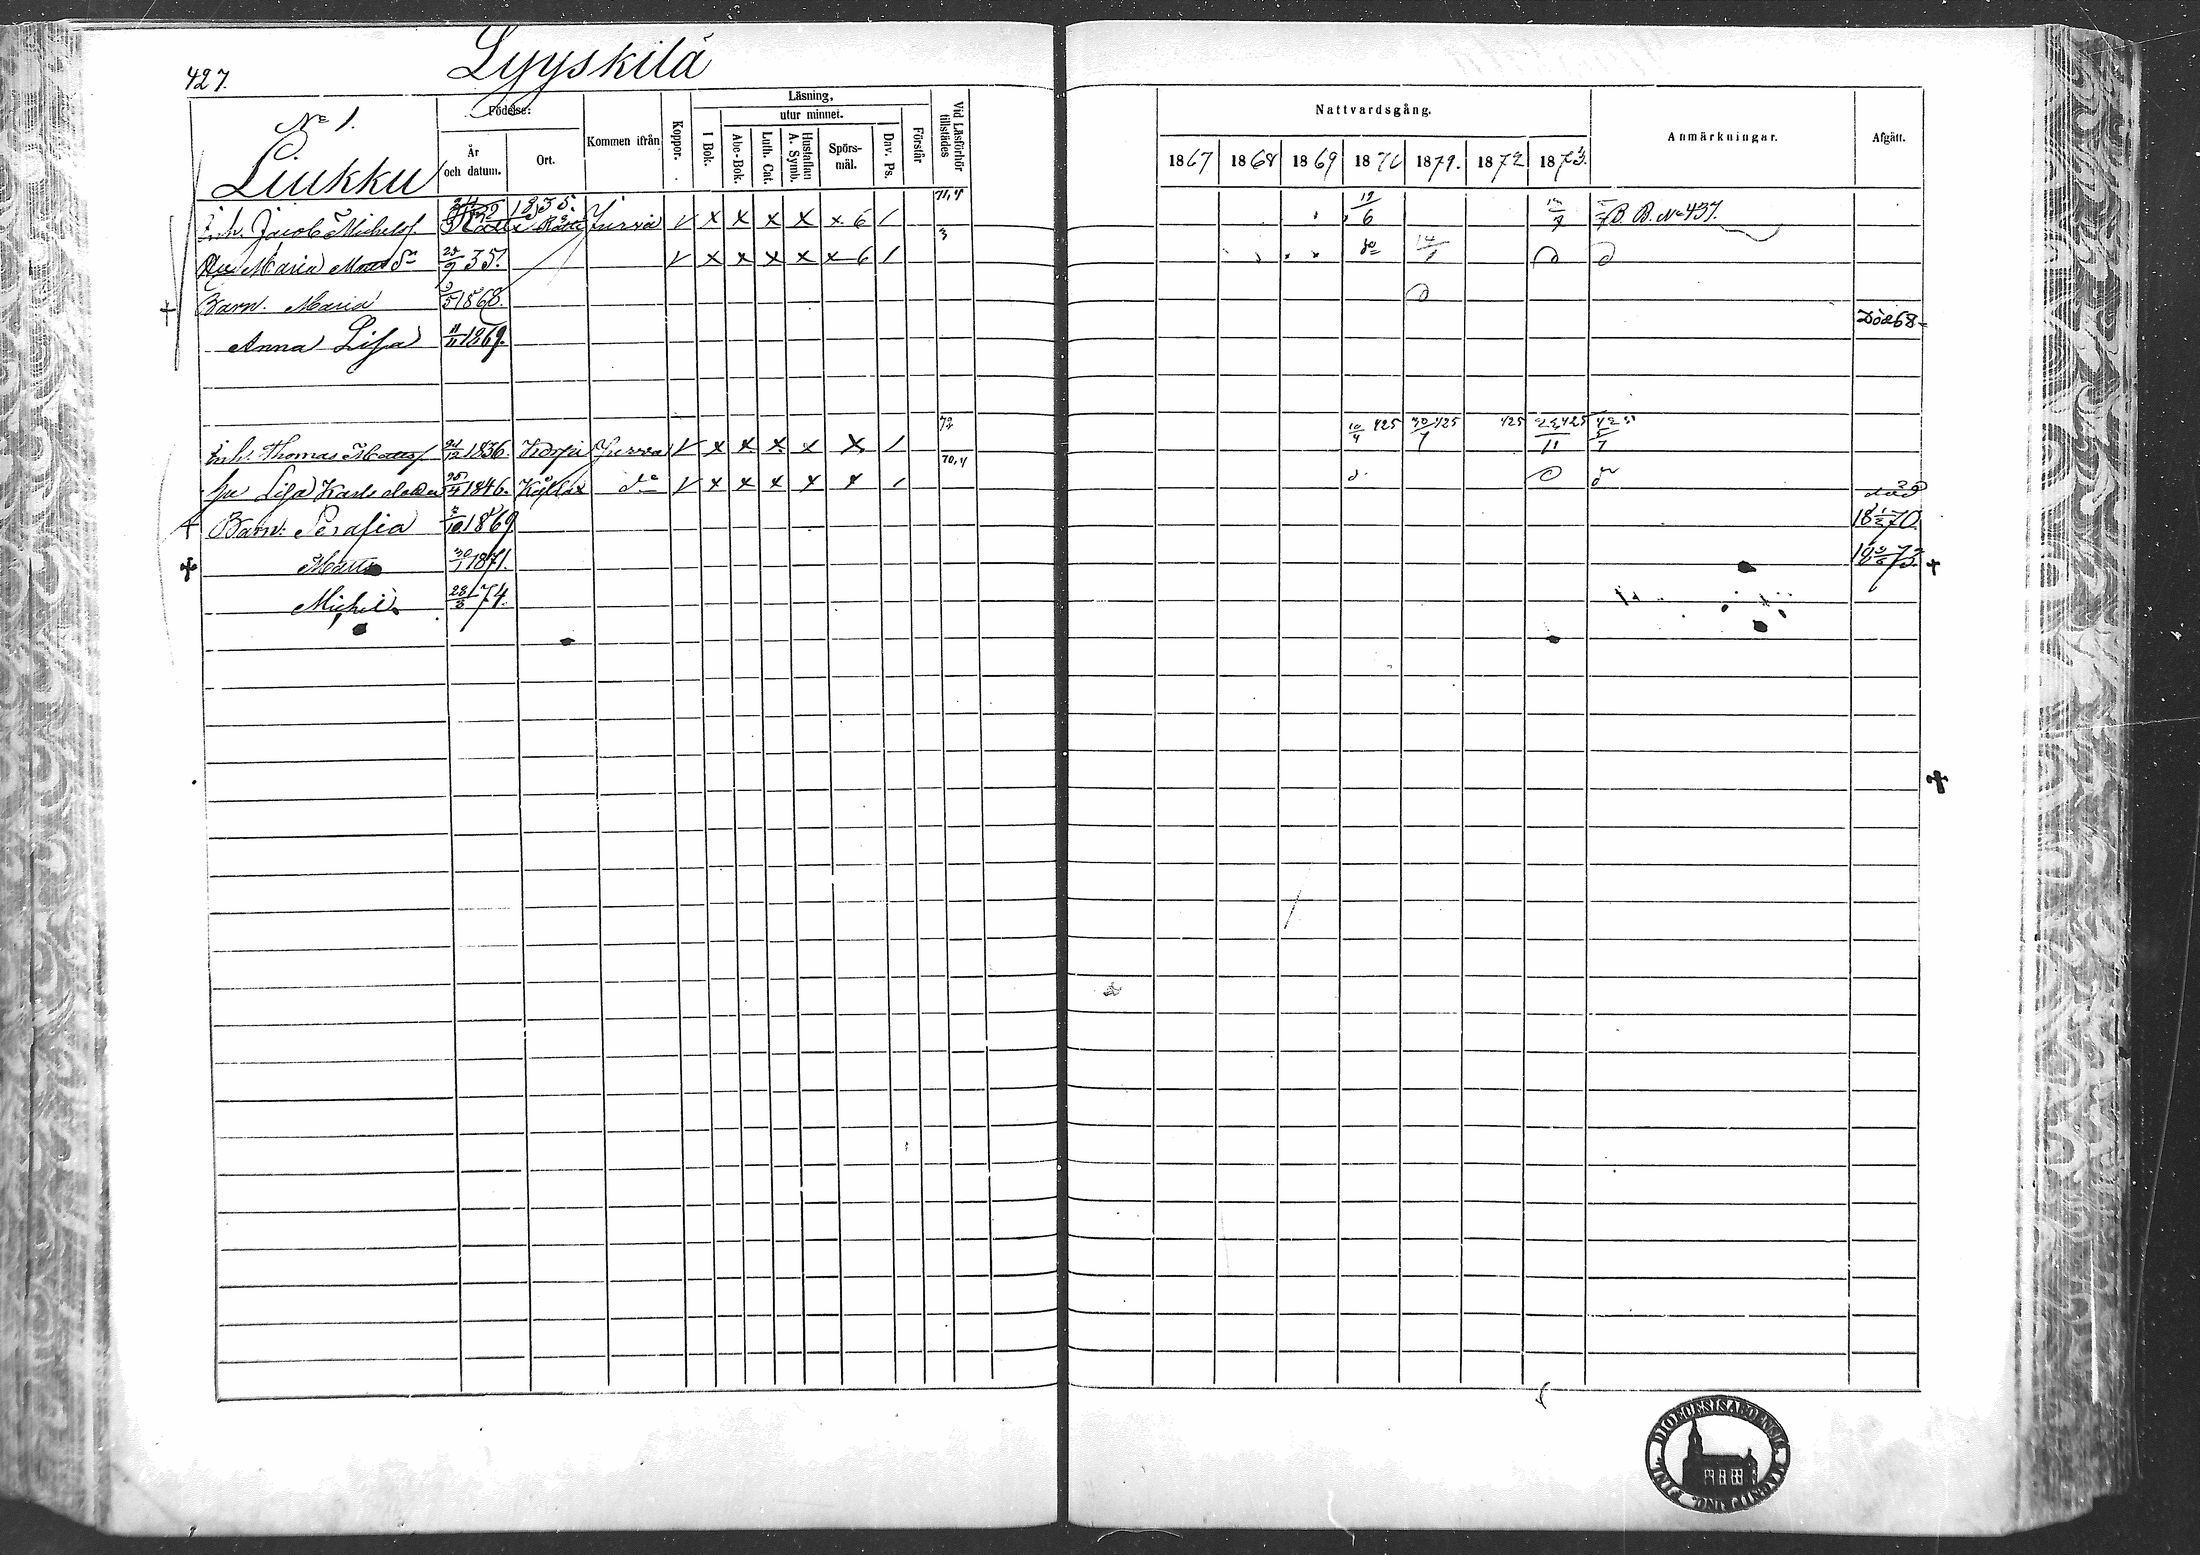 427.
Lyyskilä
No 1.
Liukku
Födelse:
År och datum.
Ort.
Kommen ifrån
Koppor.
Läsning,
I Bok.
utur minnet.
Abc-Bok.
Luth. Cat.
Hustaflan A. Symb.
Spörs-mål.
Dav. Ps.
Förstår
Vid Läsförhör tillstädes
Nattvardsgång.
1867 1868 1869 1870 1871. 1872 1873.
Anmärkningar.
Afgått.
Inh. Jacob Michelss 1835. Jurva V x x x x x 6 / 71,4 19/6 B. B. No 437.
Hu Maria 35. V x x x x x 6 / 3 do 14/
Barn. Maria 3/5 1868. Död 68
Anna Lisa 11/11 1869.
Inh. Thomas Mattss 21/12 1836. Jurva V x x x x x / 72 10/4 425 30/7 425 425 425
hu Lisa Karls dotter 25/4 1846. do V x x x x x / 70,4
Barn: Serafia 2/10 1869 död 18 70
Matts 30/1 1871. 18 73.
Michel 28/3 74.
DIOECESIS ABOENSIS
MAGNI DUC. FINL.